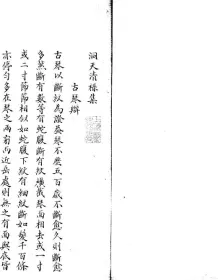 洞天清祿集
古琴辯
古琴以斷紋為證葢琴不歴五百歲不斷愈久則斷愈
多然斷有數等有蛇腹斷有紋橫截琴面相去或一寸
或二寸節節相似如蛇腹下紋有細紋斷如髮千百條
亦停匀多在琴之兩旁而近岳處則無之有面與底皆